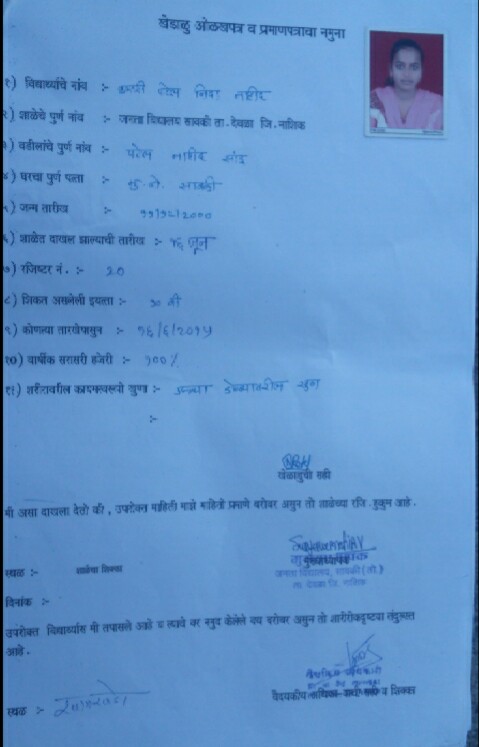 खेडाळु ओळखपत्र व प्रमाणपत्राचा नमुना
१) विद्यार्थ्याचे नांव :-
२) शाळेचे पुर्ण नांव :- जनता विद्यालय सावकी ता.देवळा जि.नाशिक
३) वडीलांचे पुर्ण नांव :- पटेल
४) घरचा पुर्ण पत्ता :- सावकी
५) जन्म तारीख :- ११/१२/२०००
६) शाळेत दाखल झाल्याची तारीख :- १६ जून
७) रजिष्टर नं. :- २०
८) शिकत असलेली इयत्ता :- १० वी
९) कोणत्या तारखेपासुन :- १६/६/२०१५
१०) वार्षीक सरासरी हजेरी :- १००%
११) शरीरावरील कायमस्वरुपी खुणा :- डोळ्यावरील खुण
:-
खेळाडुची सही
मी असा दाखला देतो की , उपरोक्त माहिती माझे माहिती प्रमाणे बरोबर असुन ती शाळेच्या रजि .हुकुम आहे .
मुख्याध्यापक
स्थळ :- शाळेचा शिक्का
जनता विद्यालय, सावकी (लो.)
ता. देवळा जि. नाशिक
दिनांक :-
उपरोक्त विद्यार्थ्यास मी तपासले आहे व त्याचे वर नमुद केलेले वय बरोबर असुन तो शारीरीकदृष्टया तंदुरुस्त
आहे .
वैद्यकीय सही व शिक्का
स्थळ :-